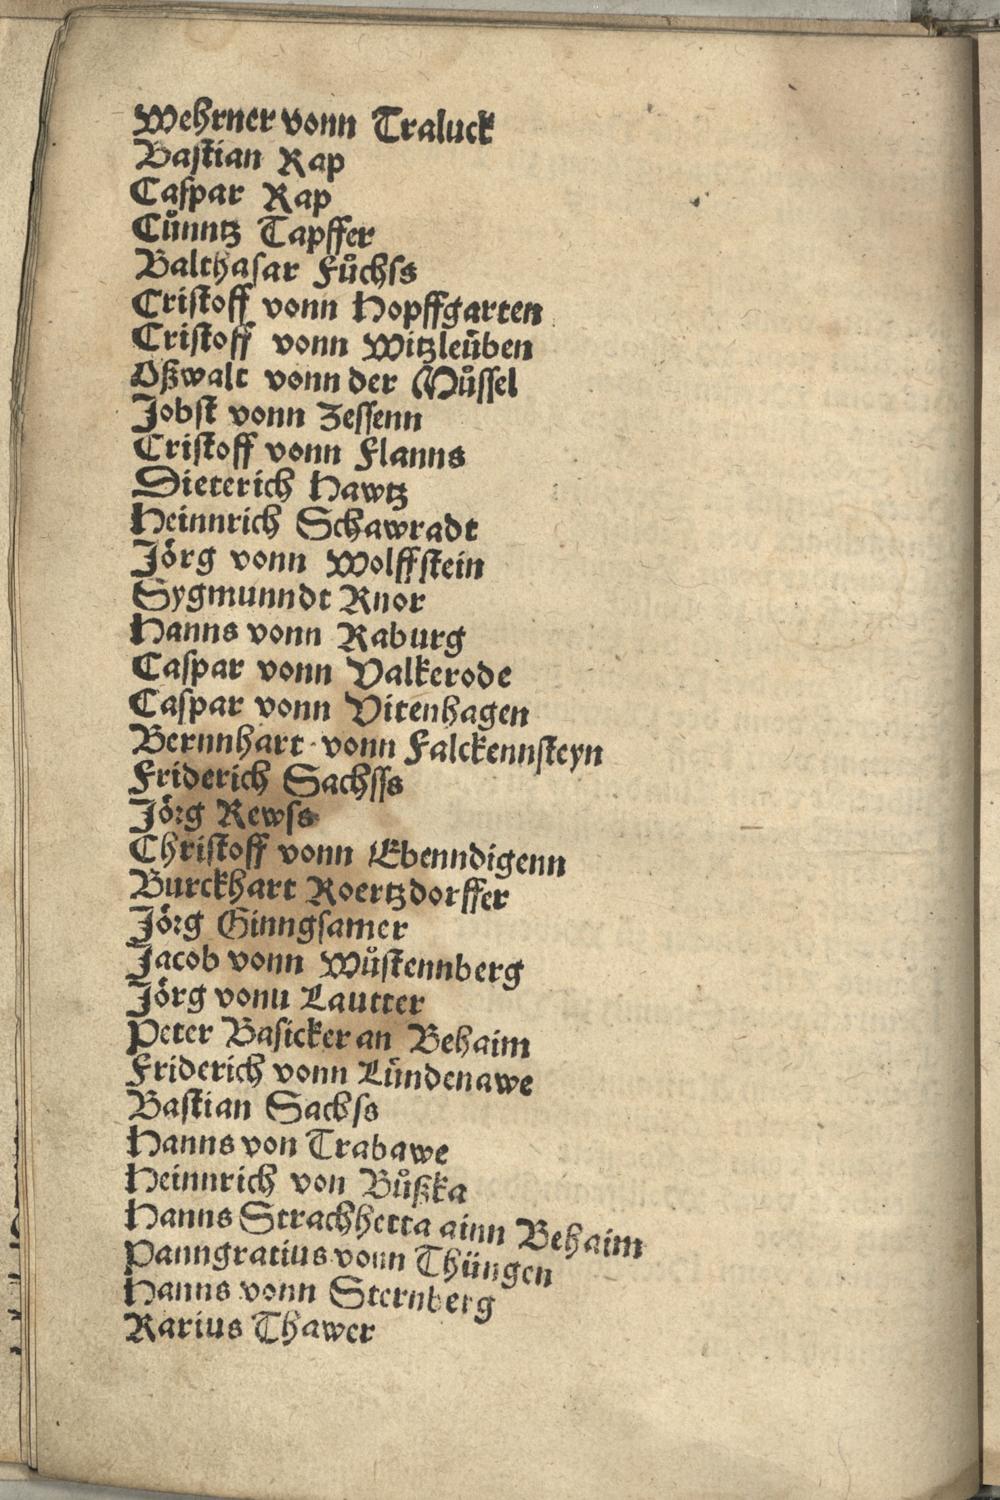 Wehrner vonn Traluck
Baſtian Rap
Caſpar Rap
Cůnntz Tapffer
Balthaſar Fůchſs
Criſtoff vonn Hopffgarten
Criſtoff vonn Witzleüben
Oßwalt vonn der Můſſel
Jobſt vonn Zeſſenn
Criſtoff vonn Flanns
Dieterich Hawtz
Heinnrich Schawradt
Jörg vonn Wolffſtein
Sygmunndt Knor
Hanns vonn Raburg
Caſpar vonn Valkerode
Caſpar vonn Vitenhagen
Bernnhart vonn Falckennſteyn
Friderich Sachſſs
Jörg Rewſs
Chriſtoff vonn Ebenndigenn
Burckhart Roertzdorffer
Jörg Ginngſamer
Jacob vonn Wůſtennberg
Jörg vonn Lautter
Peter Baſicker an Behaim
Friderich vonn Lündenawe
Baſtian Sachſs
Hanns von Trabawe
Heinnrich von Bůßka
Hanns Strachhetta ainn Behaim
Panngratius vonn Thüngen
Hanns vonn Sternberg
Karius Thawer